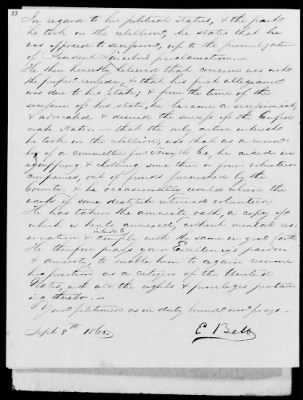 In regard to his political status, & the part
he took in the rebellion, he states that he
was opposed to secession, up to the promulgation
of President Lincoln's proclamation.—
He then honestly believed that coercion was not
the proper remedy, & that his first allegiance
was due to his State; & from the time of the
secession of his state, he became a secessionist,
& advocated & desired the success of the Confed-
erate States.— that the only active interest
he took in the rebellion, was that as a mem-
ber of a committee for Co, he aided in
equipping & clothing some three or four volunteer
companies, out of funds furnished by the
County, & he occasionally would relieve the
wants of some destitute returned volunteers.
He has taken the amnesty oath, a copy of
which is hereto annexed, without mental res-
ervation & intends to comply with the same in good faith.
He therefore prays your Excellency's pardon
& amnesty, to enable him to again resume
his position as a citizen of the United
States, with all the rights & privileges pertain-
ing thereto.—
Your petitioner as in duty bound will ever pray.—
Sept 8th 1865
E Bell